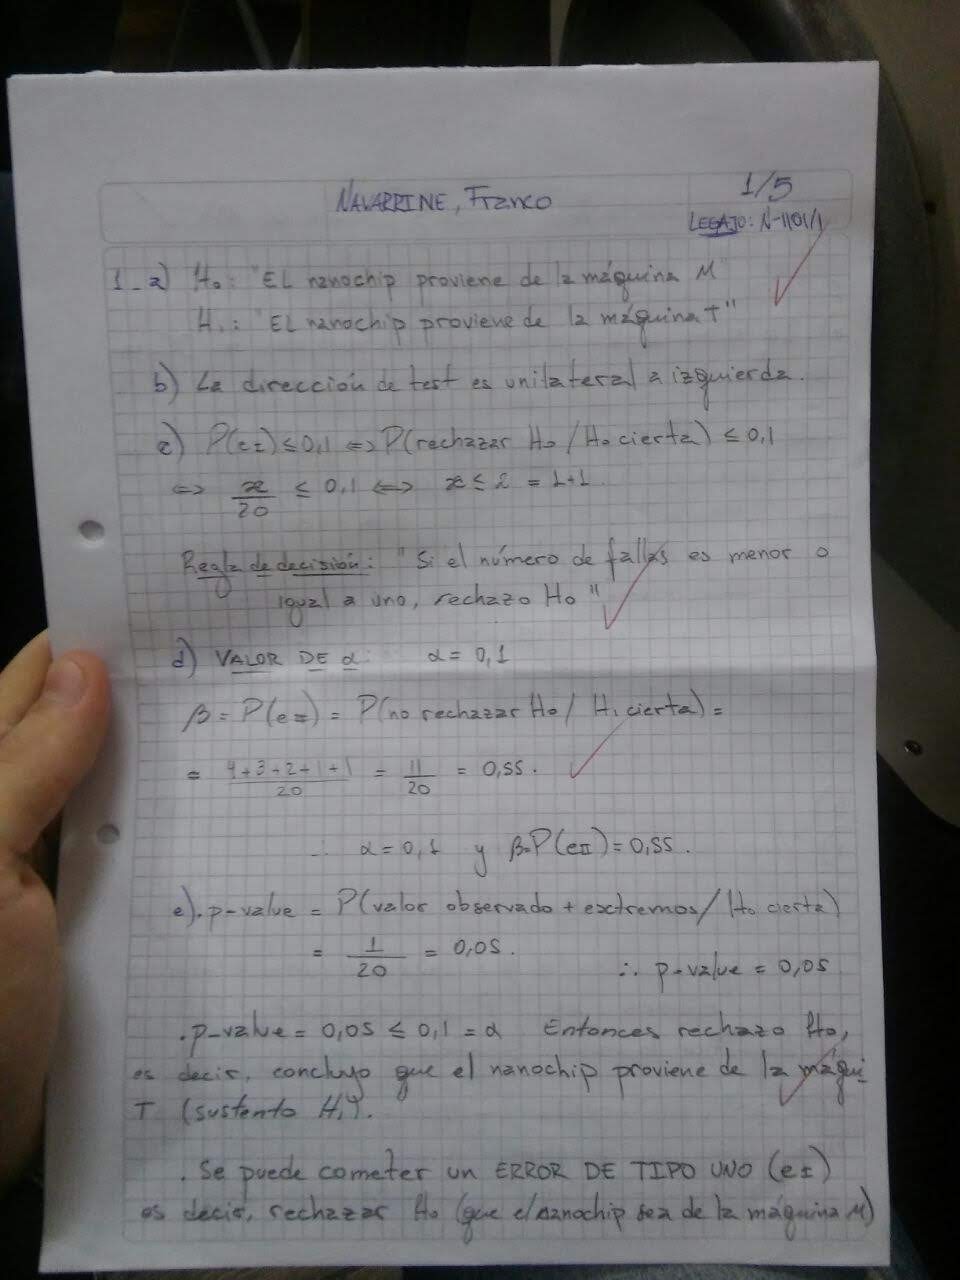 NAVARRINE, Franco
1/5
LEGAJO: N-1101/1
1-a) H₀: "EL nanochip proviene de la máquina M"
H₁: "EL nanochip proviene de la máquina T"
b) La dirección de test es unilateral a izquierda.
c) P(eI) ≤ 0,1 ⇔ P(rechazar H₀ / H₀ cierta) ≤ 0,1
⇔ x/20 ≤ 0,1 ⇔ x ≤ 2 = 1+1.
Regla de decisión: "Si el número de fallas es menor o
igual a uno, rechazo H₀"
d) VALOR DE α: α = 0,1
β = P(eII) = P(no rechazar H₀ / H₁ cierta) =
= 4+3+2+1+1/20 = 11/20 = 0,55.
∴ α = 0,1 y β = P(eII) = 0,55.
e). p-value = P(valor observado + extremos / H₀ cierta)
= 1/20 = 0,05.
∴ p-value = 0,05
. p-value = 0,05 ≤ 0,1 = α Entonces rechazo H₀,
es decir, concluyo que el nanochip proviene de la máqui
T (sustento H₁).
. Se puede cometer un ERROR DE TIPO UNO (eI)
es decir, rechazar H₀ (que el nanochip sea de la máquina M)